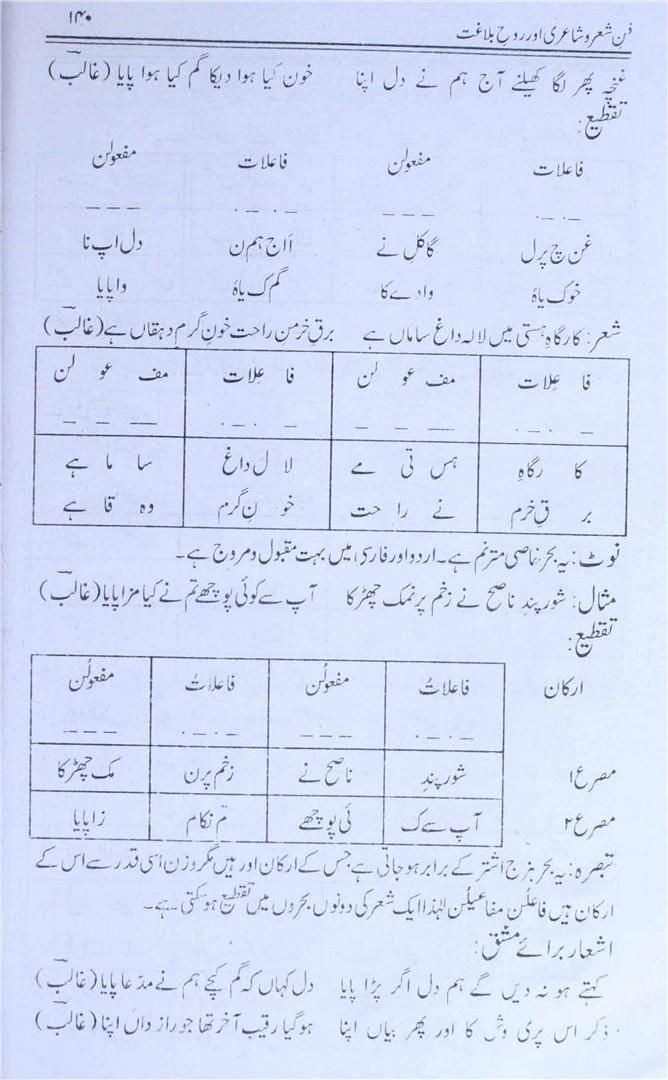 فنِ شعر و شاعری اور روحِ بلاغت ۱۴۰
غنچہ پھر لگا کھلنے آج ہم نے دل اپنا خون کیا ہوا دیکا گم کیا ہوا پایا (غالب)
تقطیع:
فاعلات مفعولن فاعلات مفعولن
– . – . – – – – . – . – – –
غن چ پرل گاکلِ نے اَاج ہم ن دل اپ نا
خوک یاہُ وادے کا گم ک یاہُ واپایا
شعر: کارگاہِ ہستی میں لالہ داغ ساماں ہے برقِ خرمنِ راحت خونِ گرمِ دہقاں ہے (غالب)
فا عِلات مف عو لن فا عِلات مف عو لن
– . – . – – – – . – . – – –
کا رگاہِ ہس تی مے لا لَ داغ سا ما ہے
بر قِ خرم نے را حت خو نِ گرم وہ قا ہے
نوٹ: یہ بحر خاصی مترنم ہے۔ اردو اور فارسی میں بہت مقبول و مروج ہے۔
مثال: شورِ پندِ ناصح نے زخم پر نمک چھڑکا آپ سے کوئی پوچھے تم نے کیا مزا پایا (غالب)
تقطیع:
ارکان فاعلاتُ مفعولُن فاعلاتُ مفعولُن
– . – . – – – – . – . – – –
مصرع۱ شور پندِ ناصح نے زخم پرن مک چھڑکا
مصرع۲ آپ سے ک ئی پوچھے تم نکام زاپایا
تبصرہ: یہ بحر ہزج اشتر کے برابر ہو جاتی ہے جس کے ارکان اور ہیں مگر وزن اُسی قدر سے اس کے
ارکان ہیں فاعلُن مفاعیلُن لہٰذا ایک شعر کی دونوں بحروں میں تقطیع ہو سکتی ہے۔
اشعار برائے مشق:
کہتے ہو نہ دیں گے ہم دل اگر پڑا پایا دل کہاں کہ گم کیجے ہم نے مدّعا پایا (غالب)
ذکر اس پری وش کا اور پھر بیاں اپنا ہو گیا رقیب آخر تھا جو راز داں اپنا (غالب)